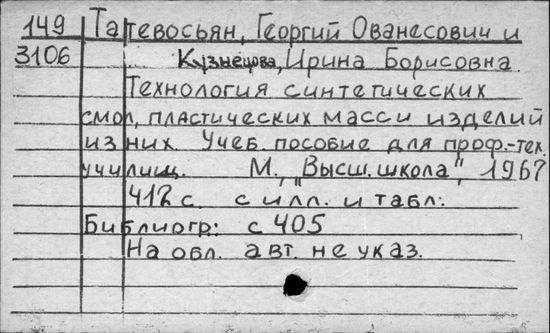 149 Татевосьян, Георгий Ованесович и
3106 Кузнецова, Ирина Борисовна.
Технология синтетических
смол, пластических масс и изделий
из них. Учеб. пособие для проф.-тех.
училищ. М., "Высш. школа", 1967
412 с. с илл. и табл.
Библиогр: с 405
На обл. авт. не указ.